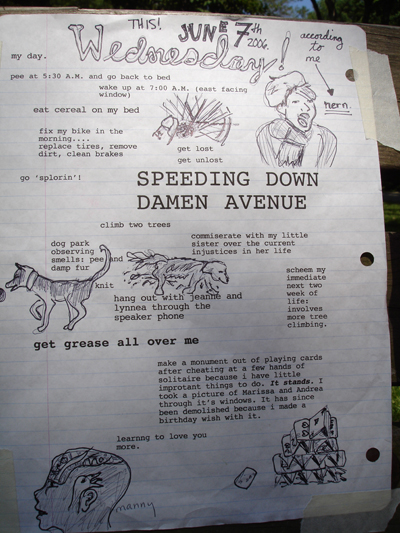 THIS! JUNE 7th 2006.
Wednesday!
according
to
me
nern.
my day.
pee at 5:30 A.M. and go back to bed
wake up at 7:00 A.M. (east facing
window)
eat cereal on my bed
fix my bike in the
morning....
replace tires, remove
dirt, clean brakes
get lost
get unlost
go 'splorin'!
SPEEDING DOWN
DAMEN AVENUE
climb two trees
commiserate with my little
sister over the current
injustices in her life
dog park
observing
smells: pee and
damp fur
knit
hang out with jeanne and
lynnea through the
speaker phone
scheem my
immediate
next two
week of
life:
involves
more tree
climbing.
get grease all over me
make a monument out of playing cards
after cheating at a few hands of
solitaire because i have little
improtant things to do. It stands. I
took a picture of Marissa and Andrea
through it's windows. It has since
been demolished because i made a
birthday wish with it.
learnng to love you
more.
manny